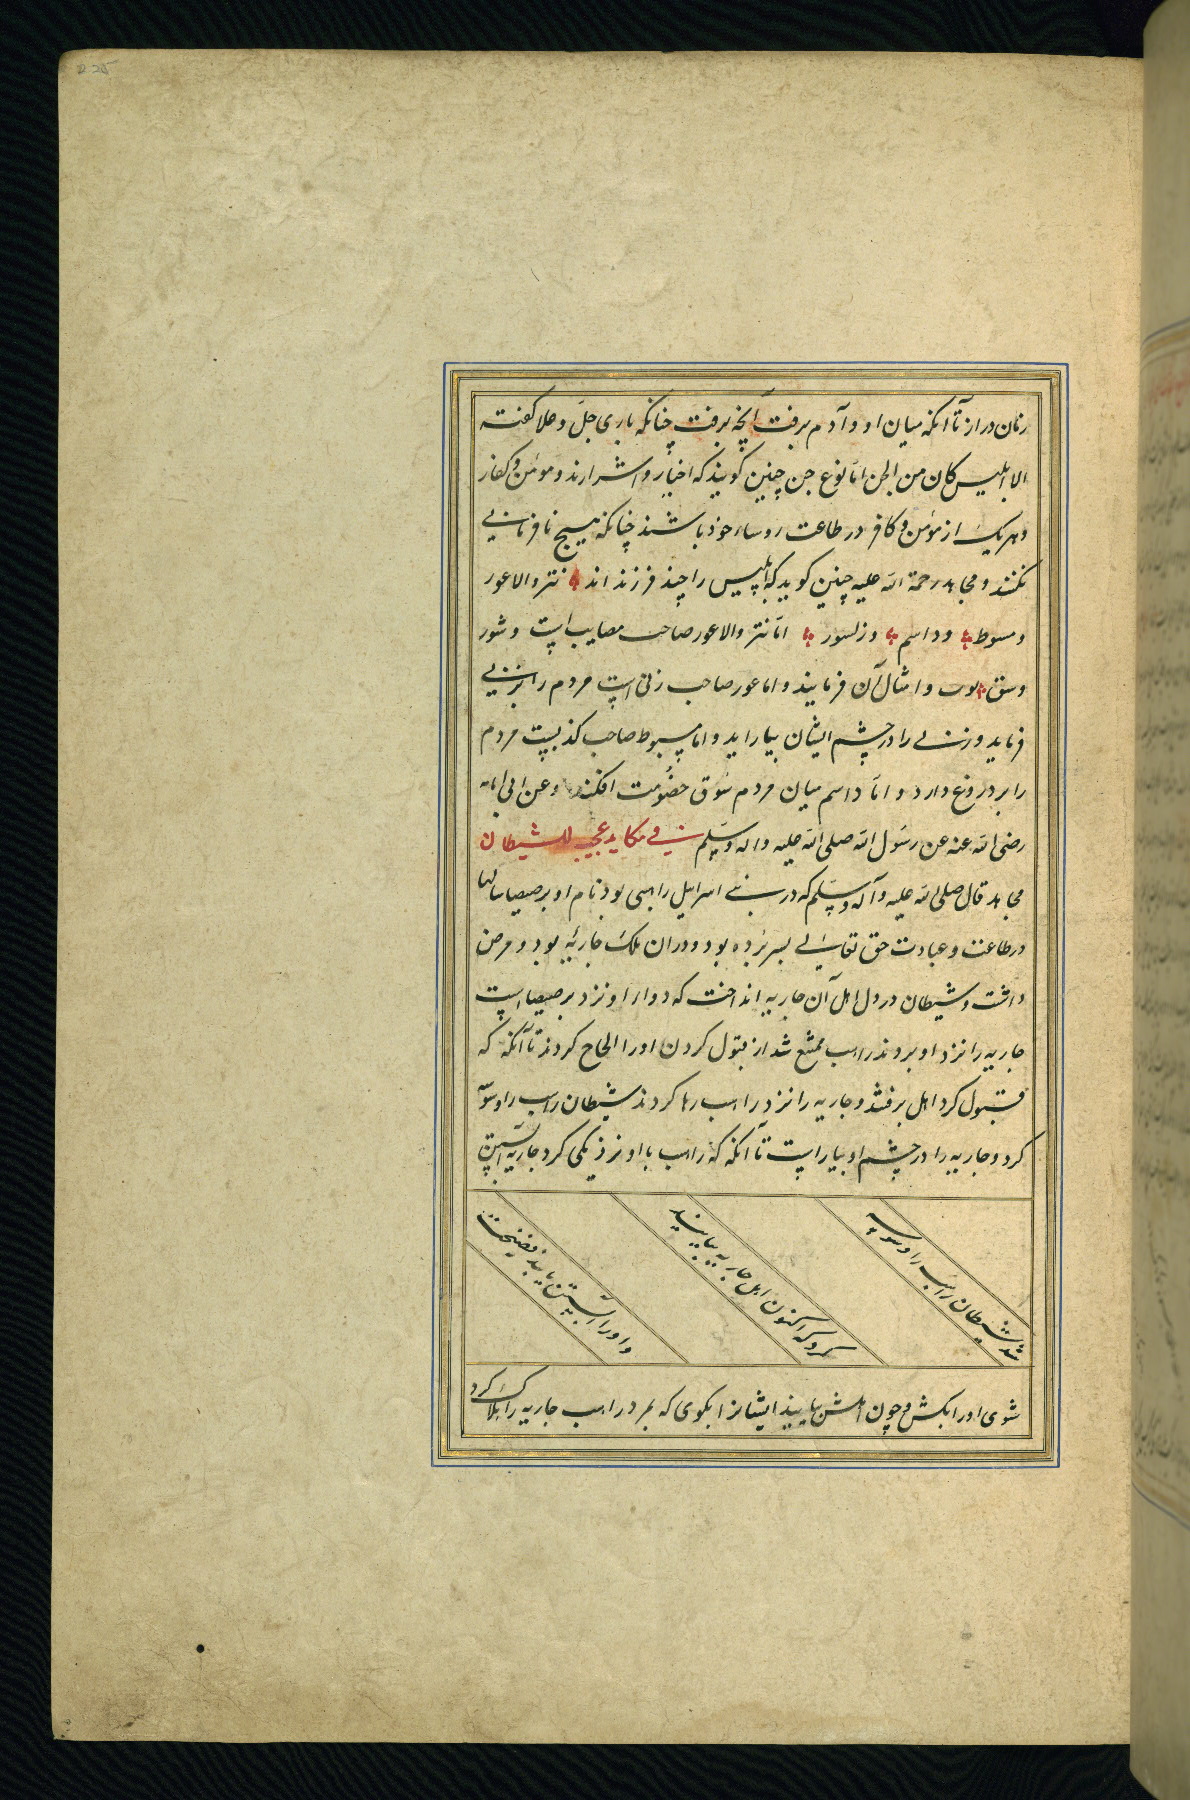 زنان دراز تا آنکه میان او و آدم برفت آنچه برفت چنانکه باری جل و علا کفته
الا ابلیس کان من الجن اما نوع جن چنین کویند که اخیار و اشرارند و مومن و کفار
و هریک از مومن و کافر در طاعت روساء خود باشند چنانکه هیچ نافرمانی
نکنند و مجاهد رحمة الله علیه چنین کوید که ابلیس را چند فرزند اند نتر والاعور
و مسوط و داسم و زلسور اما نتر والاعور صاحب مصایب است و شور
و شق و امثال آن فرمایند و اما عور صاحب زنی است مردم را بزنی
فرماید و زنی را در چشم ایشان بیاراید و اما مسبوط صاحب کذبست مردم
را بر دروغ دارد و اما داسم میان مردم سوق خصومت افکند و عن ابی امامه
رضی الله عنه عن رسول الله صلی الله علیه واله وسلم فی مکاید عجیب للشیطان
مجاهد قال صلی الله علیه وآله وسلم که در بنی اسرایل راهبی بود نام او برصیصا سالها
در طاعت و عبادت حق تعالی بسر برده بود و در ان ملک جاریهٔ بود و مرض
داشت و شیطان در دل اهل آن جاریه انداخت که دوا او نزد برصیصا است
جاریه را نزد او بردند راهب ممتنع شد از قبول کردن او را الحاح کردند تا آنکه که
قبول کرد اهل برفتند و جاریه را نزد راهب رها کردند شیطان راهب را وسوسه
کرد و جاریه را در چشم او بیاراست تا آنکه که راهب با او نزدیکی کرد جاریه آبستن
شد شیطان راهب را وسوسه
کرد که اکنون اهل جاریه بیایند
و او را آبستن یابند فضیحت
شوی او را بکش و چون اهلش بیایند ایشانرا بکوی که بمرد راهب جاریه را هلاک کرد